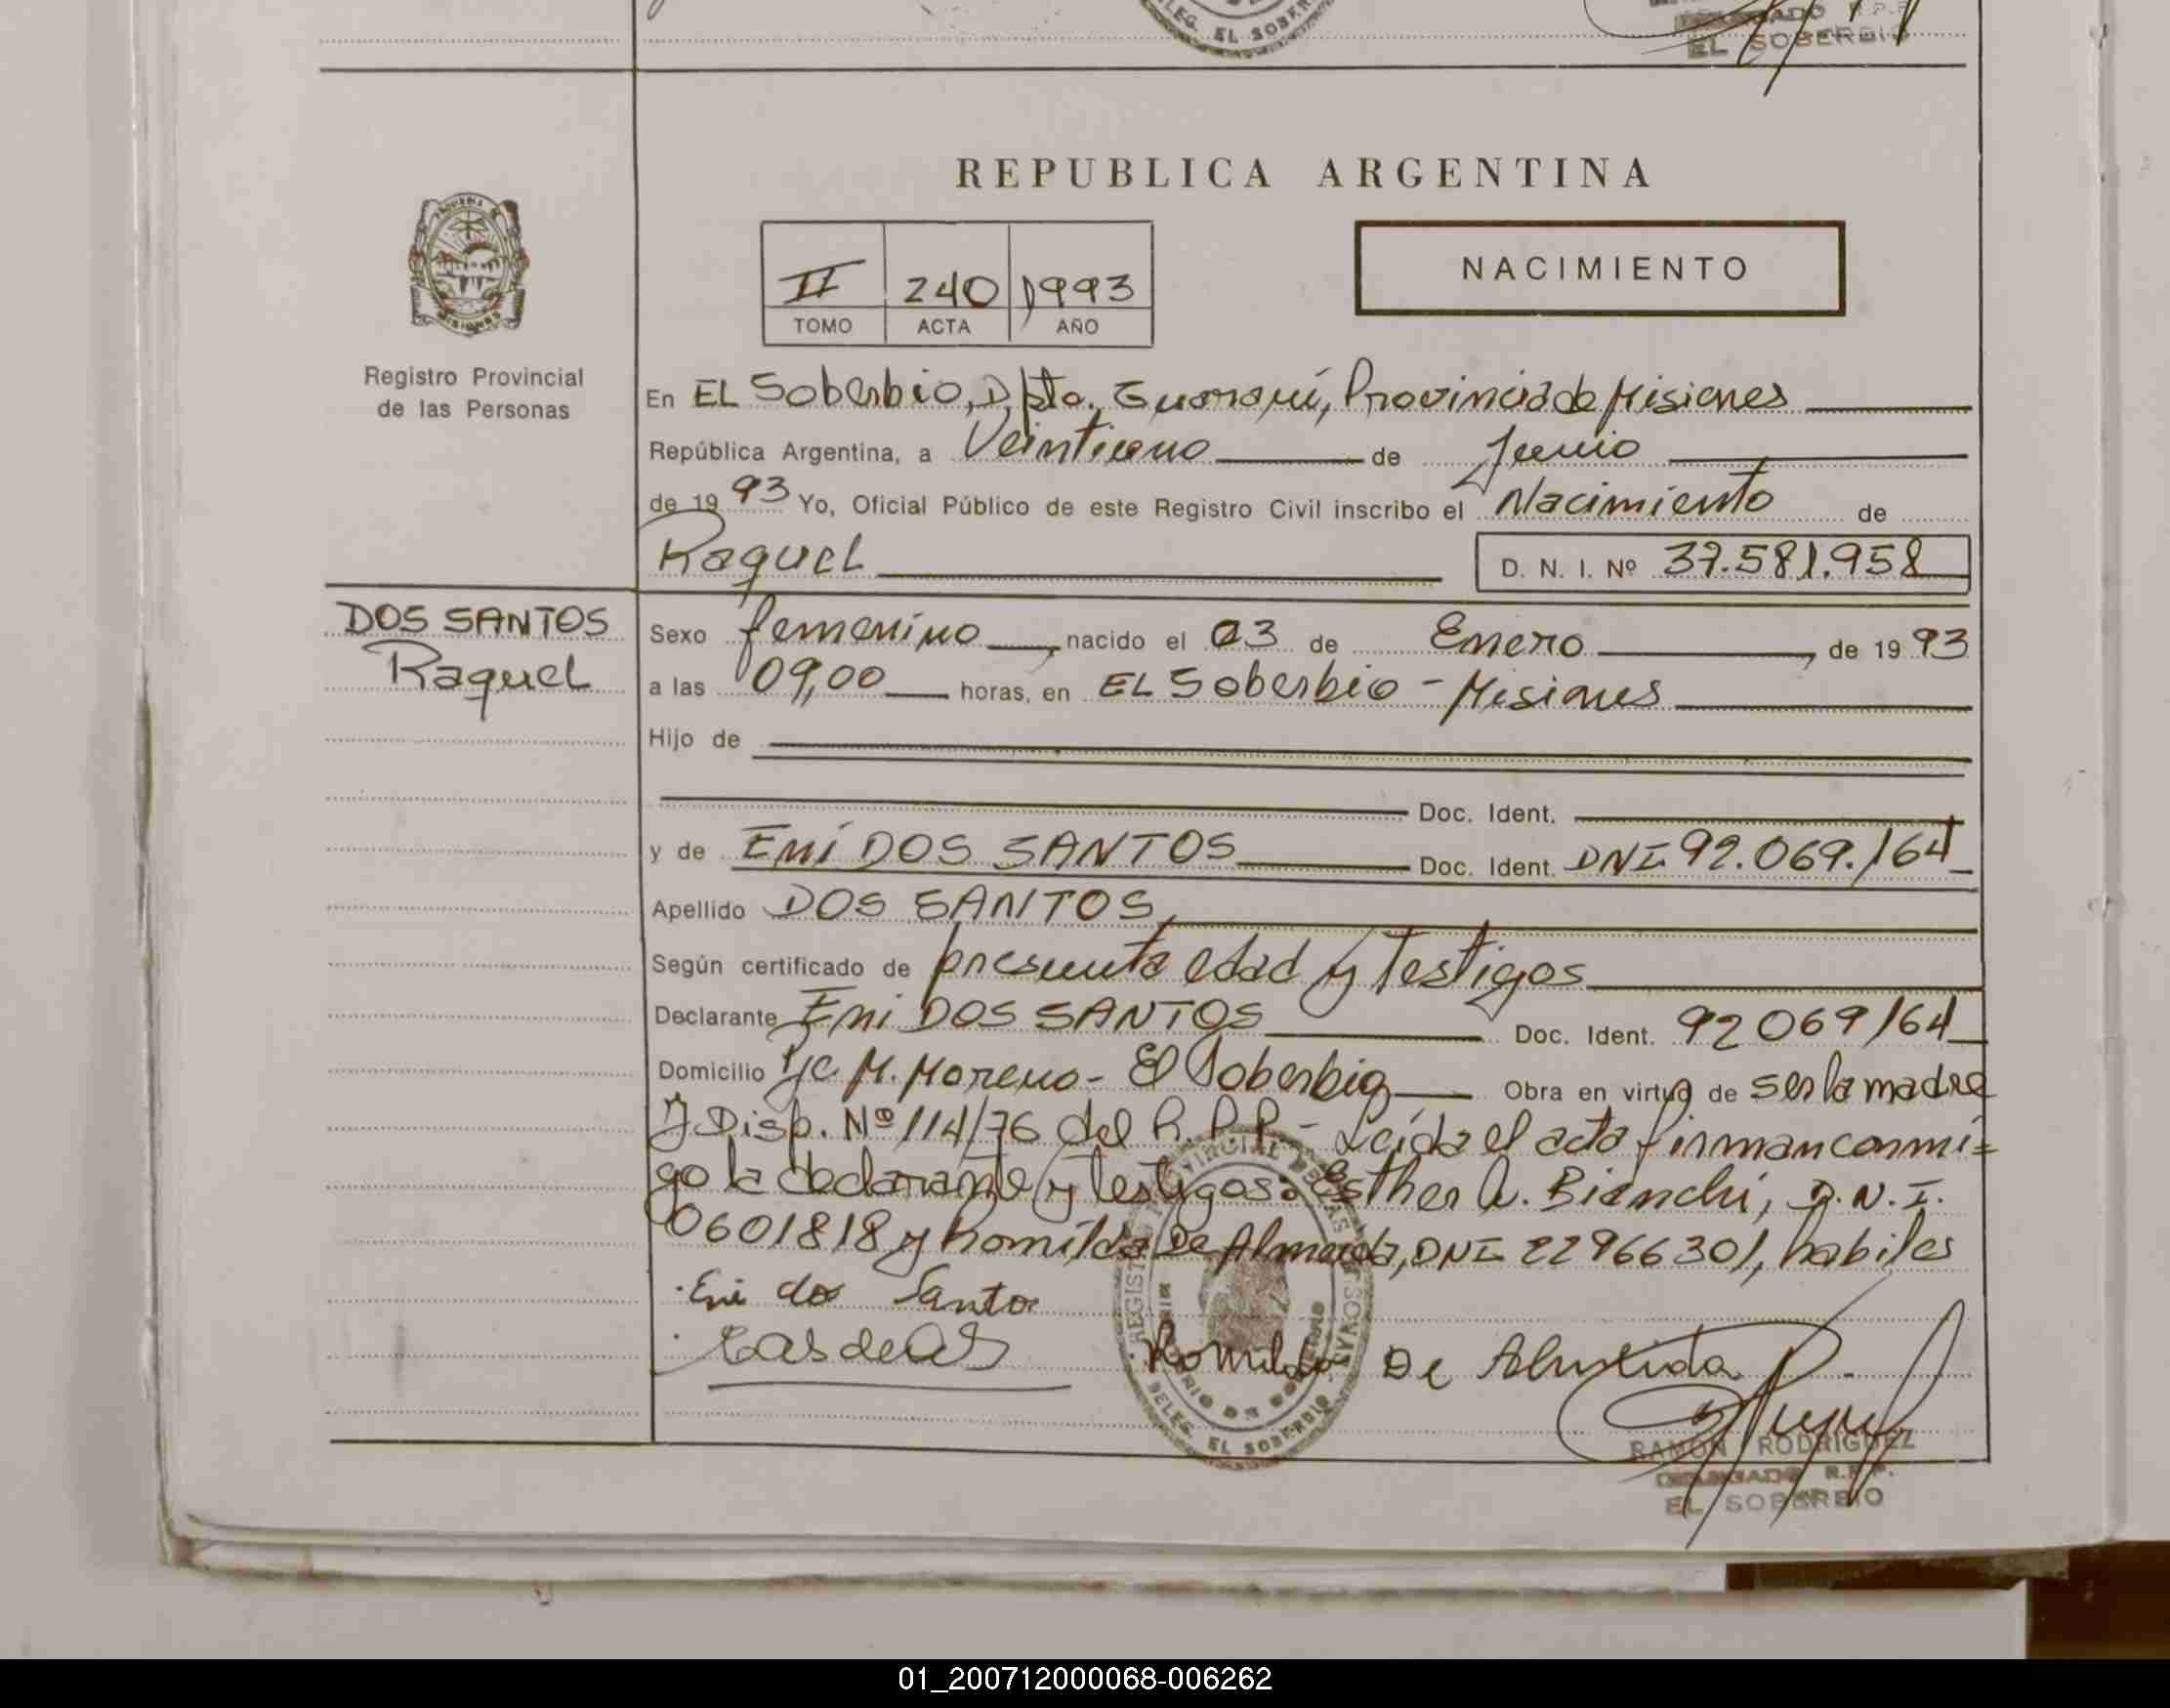 DELEG. EL SOBERBIO
EL SOBERBIO
REPUBLICA ARGENTINA
II 240 1993
TOMO ACTA AÑO
NACIMIENTO
Registro Provincial
de las Personas
En EL Soberbio, Dpto. Guaraní, Provincia de Misiones
República Argentina, a Veintiuno de Junio
de 19 93 Yo, Oficial Público de este Registro Civil inscribo el Nacimiento de
Raquel D. N. I. Nº 37.581.958
DOS SANTOS
Raquel
Sexo femenino, nacido el 03 de Enero, de 19 93
a las 09,00 horas, en EL Soberbio - Misiones
Hijo de
Doc. Ident.
y de Eni DOS SANTOS Doc. Ident. DNI 92.069.164
Apellido DOS SANTOS,
Según certificado de presunta edad y Testigos
Declarante Eni DOS SANTOS Doc. Ident. 92069164
Domicilio M. Moreno - El Soberbio Obra en virtud de ser la madre
y Disp. Nº 114/76 del R.P.P.- Leída el acta firman conmi=
go la declarante y testigos: Esther A. Bianchi, D.N.I.
0601818 y Romilda De Almeida, DNI 22966301, habiles
Eni do Santo
Romilda De Almeida
REGISTRO PROVINCIAL DE LAS PERSONAS
DELEG. EL SOBERBIO
RAMON RODRIGUEZ
DELEGADO R.P.P.
EL SOBERBIO
01_200712000068-006262